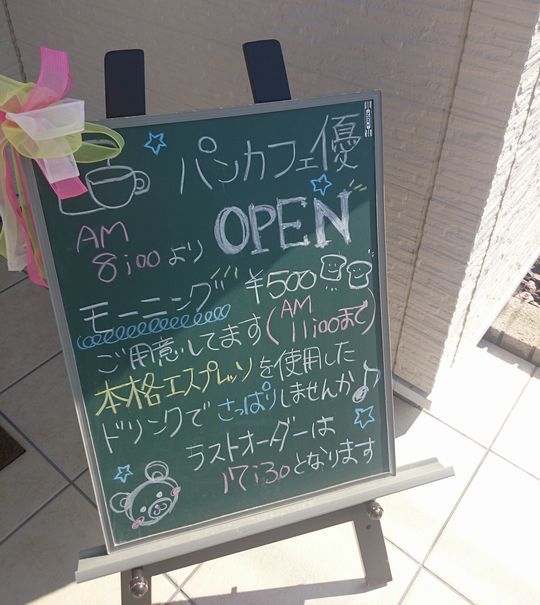 パンカフェ優
OPEN
AM
8:00より
モーニング ¥500
ご用意してます(AM 11:00まで)
本格エスプレッソを使用した
ドリンクでさっぱりしませんか♪
ラストオーダーは
17:30となります